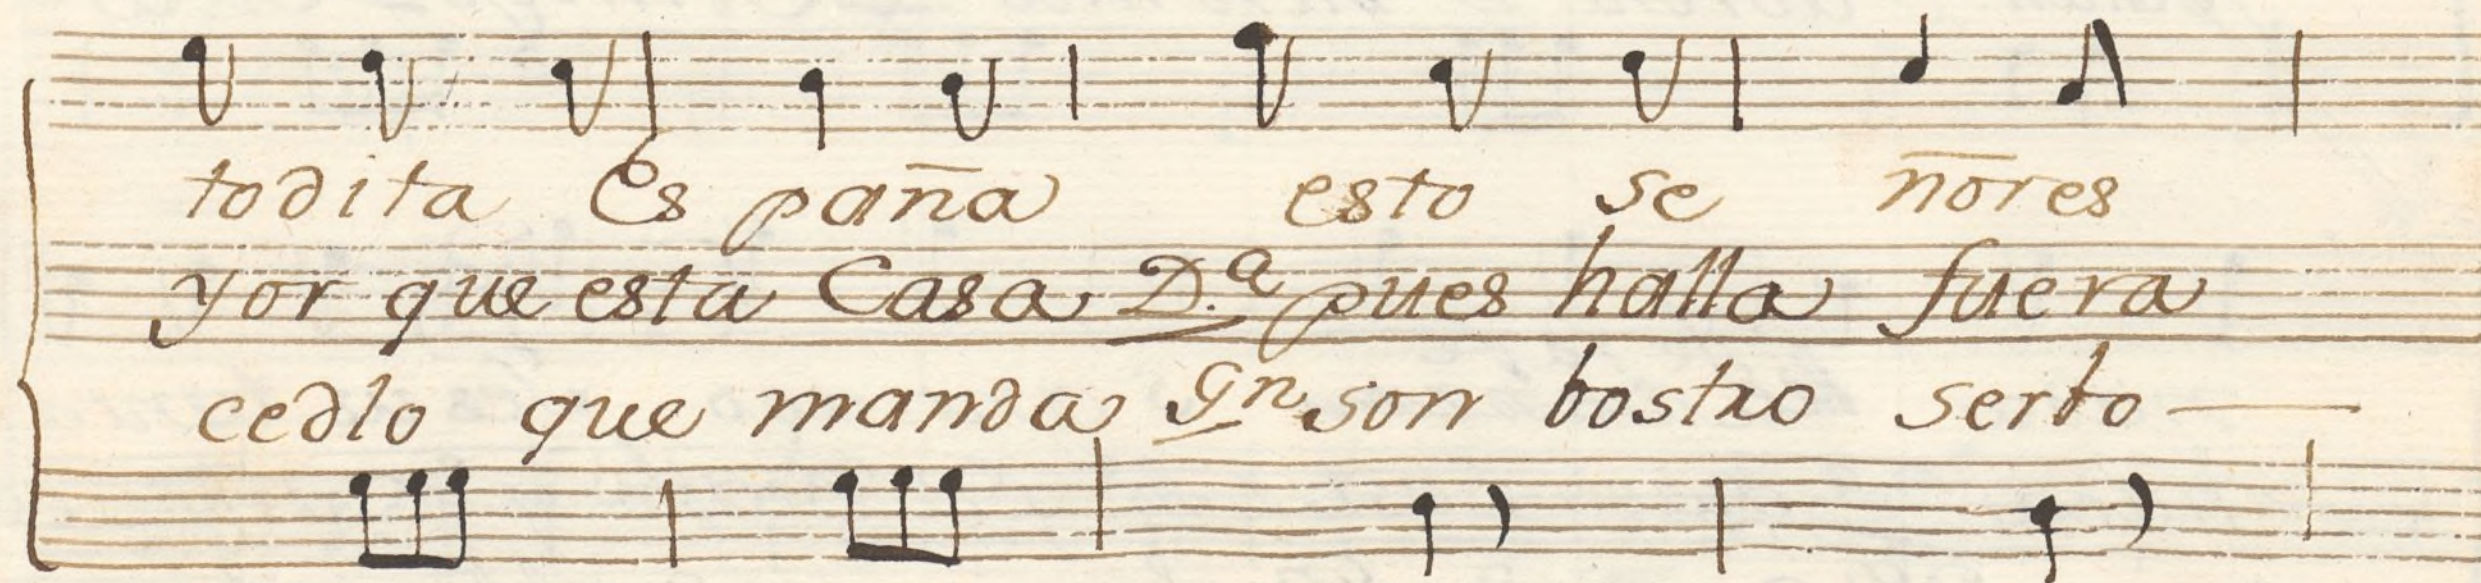 todita Es paña esto se ñores
yor que esta Casa D.ª pues halla fuera
cedlo que manda Gn son bostro serbo